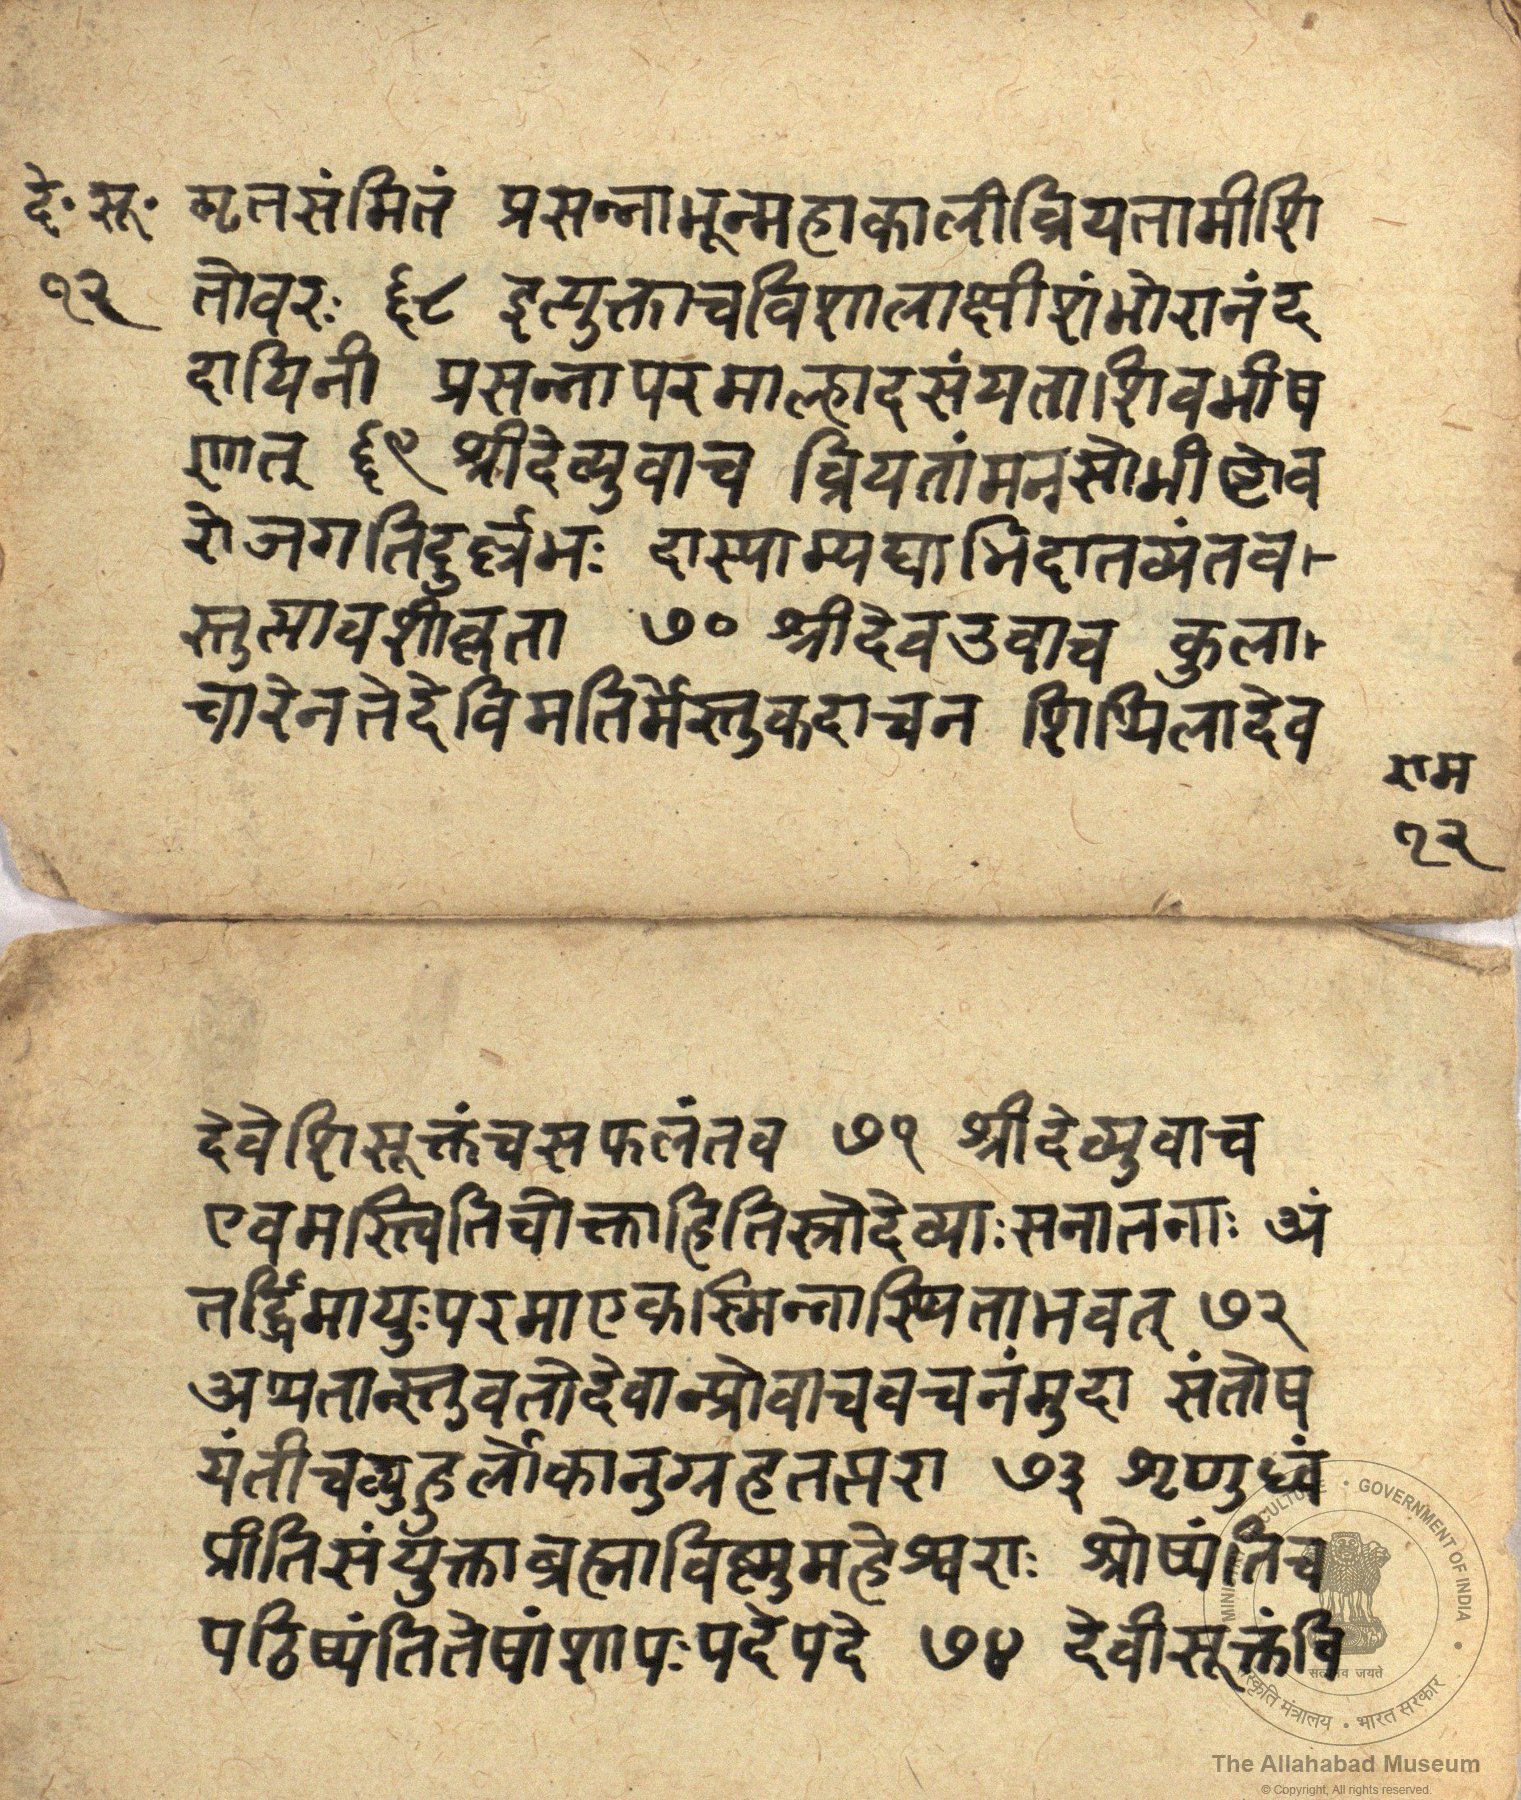 दे॰ सू॰
१२
ष्टतसंमितं प्रसन्नाभून्महाकालीव्रियतामीशि
तोवरः ६८ इत्युक्ताचविशालाक्षीशंभोरानंद
दायिनी प्रसन्नापरमाल्हादसंयताशिवभीष
णात् ६९ श्रीदेव्युवाच व्रियतांमनसोभीष्टोव
रोजगतिदुर्ल्लभः दास्याम्यद्याभिदातव्यंतव
स्तुत्यावशीकृता ७० श्रीदेवउवाच कुला
चारेनतेदेविमतिर्मेस्तुकदाचन शिथिलादेव
राम
१२
देवेशिसूक्तंचसफलंतव ७१ श्रीदेव्युवाच
एवमस्त्वितिचोक्ताहितिस्त्रोदेव्याःसनातनाः अं
तर्द्धिमायुःपरमाएकास्मिन्नास्थिताभवत् ७२
अथतान्स्तुवतोदेवान्प्रोवाचवचनंमुदा संतोष
यंतीचव्युहुर्लोकानुग्रहतत्परा ७३ शृणुध्वं
प्रीतिसंयुक्ताब्रह्माविष्णुमहेश्वराः श्रोष्यंतिच
पठिष्यंतितेषांशापःपदेपदे ७४ देवीसूक्तंवि
GOVERNMENT OF INDIA
सत्यमेव जयते
संस्कृति मंत्रालय • भारत सरकार
The Allahabad Museum
© Copyright, All rights reserved.